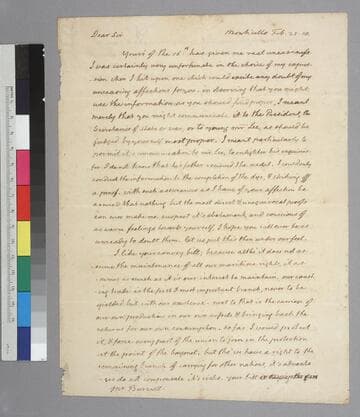 Dear Sir Monticello Feb.
Yours of the 16th has given me real uneasiness.
I was certainly very unfortunate in the choice of my expres-
sion when I hit upon one which could excite any doubt of my
unceasing affections for you. in observing that you might
use the information as you should find proper, I meant
merely that you might communicate it to the President, the
Secretaries of State or war, or to young mr Lee, as should be
judged by yourself most proper. I meant particularly to
permit it's communication to mr Lee, to enlighten his enquiries,
for I do not know that his father received the medal. I
the information to the completion of the dye, & striking off
a proof. with such assurances as I have of your affection be
assured that nothing but the most direct & unequivocal proofs
can ever make me suspect it's abatement, and conscious of
as warm feelings towards yourself I hope you will ever be as
unready to doubt them. let us put this then under our feet.
I like your convoy bill; because altho it does not as-
sume the maintenance of all our maritime rights, it as-
sumes as much as it is our interest to maintain. our coast-
ing trade is the first & most important branch, never to be
yielded but with our existence. next to that is the carriage of
our own productions in our own vessels & bringing back the
returns for our own consumption. so far I would protect
it, & force every part of the union to join in the protection
at the point of the bayonet. but tho' we have a right to the
remaining branch of carrying for other nations, it's advanta-
ges do not compensate it's risks. your bill
Mr. Burwell